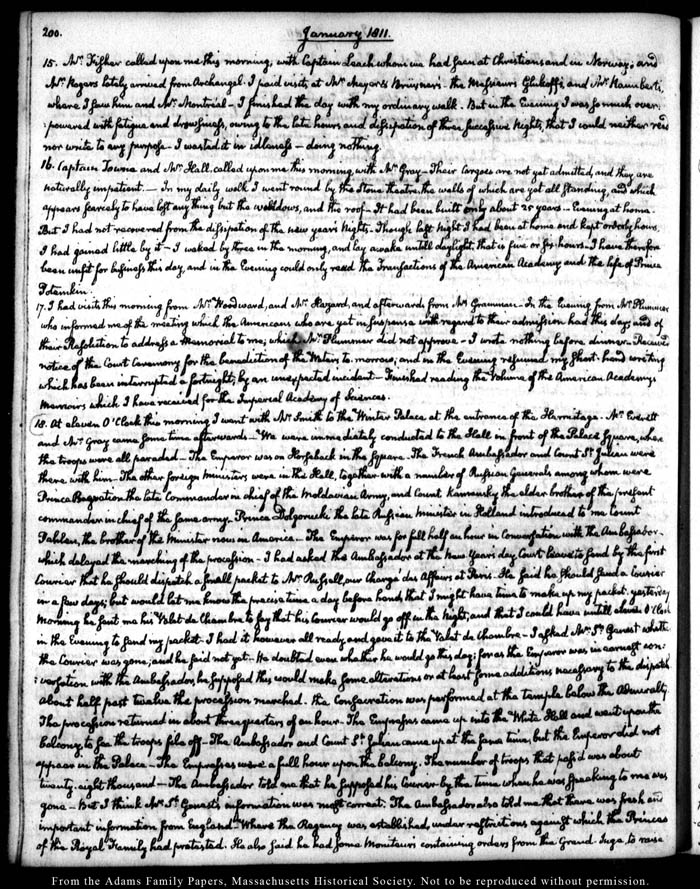 200.
January 1811.
15. Mr. Fisher called upon me this morning, with Captain Leach whom we had seen at Christiansand in Norway; and
Mr. Rogers lately arrived from Archangel. I paid visits at Mr. Meyer & Brüxner's. the Messieurs Glukoffs, and Mr. Raimbert's,
where I saw him and Mr. Montréal – I finished the day with my ordinary walk. But in the Evening I was so much over-
:powered with fatigue and drowsiness, owing to the late hours and dissipation of three successive Nights, that I could neither read
nor write to any purpose – I wasted it in idleness – doing nothing.
16. Captain Towne and Mr. Hall called upon me this morning, with Mr. Gray – Their Cargoes are not yet admitted, and they are
naturally impatient. – In my daily walk I went round by the Stone theatre, the walls of which are yet all standing, and which
appears scarcely to have lost any thing but the windows, and the roof – It had been built only about 25 years – Evening at home.
But I had not recovered from the dissipation of the new year's Nights. Though last Night I had been at home and kept orderly hours,
I had gained little by it – I waked by three in the morning, and lay awake untill daylight, that is five or six hours – I have therefore
been unfit for business this day, and in the Evening could only read the Transactions of the American Academy and the life of Prince
Potemkin.
17. I had visits this morning from Mr. Woodward, and Mr. Hazard, and afterwards from Mr. Gramman – In the Evening from Mr. Plummer
who informed me of the meeting which the Americans who are yet in suspence with regard to their admission had this day; and of
their Resolution to address a Memorial to me; which Mr. Plummer did not approve – I wrote nothing before dinner – Received
notice of the Court Ceremony for the benediction of the Waters to-morrow; and in the Evening resumed my short-hand writing
which has been interrupted a fortnight, by an unexpected incident – Finished reading the Volume of the American Academy's
Memoirs which I have received for the Imperial Academy of Sciences.
18. At eleven O'Clock this morning I went with Mr. Smith to the Winter Palace at the entrance of the Hermitage – Mr. Everett
and Mr. Gray came some time afterwards – We were immediately conducted to the Hall in front of the Palace Square, where
the troops were all paraded – The Emperor was on Horseback in the Square. The French Ambassador and Count St. Julien were
there with him – The other foreign Ministers were in the Hall, together with a number of Russian Generals among whom were
Prince Bagration the late Commander in chief of the Moldavian Army, and Count Kamensky the elder brother of the present
commander in chief of the same army – Prince Dolgorucki the late Russian Minister in Holland introduced to me Count
Pahlen, the brother of the Minister now in America – The Emperor was for full half an hour in Conversation with the Ambassador –
which delayed the marching of the procession – I had asked the Ambassador at the New Year's day Court leave to send by his first
Courier that he should dispatch a small packet to Mr. Russell, our Chargé des Affaires at Paris. He said he should send a Courier
in a few days; but would let me know the precise time a day before hand, that I might have time to make up my packet. yesterday
Morning he sent me his Valet de Chambre to say that his Courier would go off in the Night; and that I could have untill eleven O'Clock
in the Evening to send my packet – I had it however all ready, and gave it to the Valet de Chambre – I asked Mr. St. Genest whether
the Courier was gone; and he said not yet – He doubted even whether he would go this day; for as the Emperor was in earnest con-
:versation with the Ambassador, he supposed this would make some alterations or at least some additions necessary to the dispatch
About half past twelve the procession marched. The Consecration was performed at the temple below the Admiralty.
The procession returned in about three quarters of an hour – The Empresses came up into the White Hall and went upon the
balcony, to see the troops file off – The Ambassador and Count St. Julien came up at the same time, but the Emperor did not
appear in the Palace – The Empresses were a full hour upon the balcony. The number of troops that pass'd was about
twenty-eight thousand – The Ambassador told me that he supposed his Courier by the time when he was speaking to me was
gone – But I think Mr. St. Genest's information was most correct. The Ambassador also told me that there was fresh and
important information from England – Where the Regency was established, under restrictions against which the Princes
of the Royal Family had protested. He also said he had some Moniteurs containing orders from the Grand Juge to raise
From the Adams Family Papers, Massachusetts Historical Society. Not to be reproduced without permission.